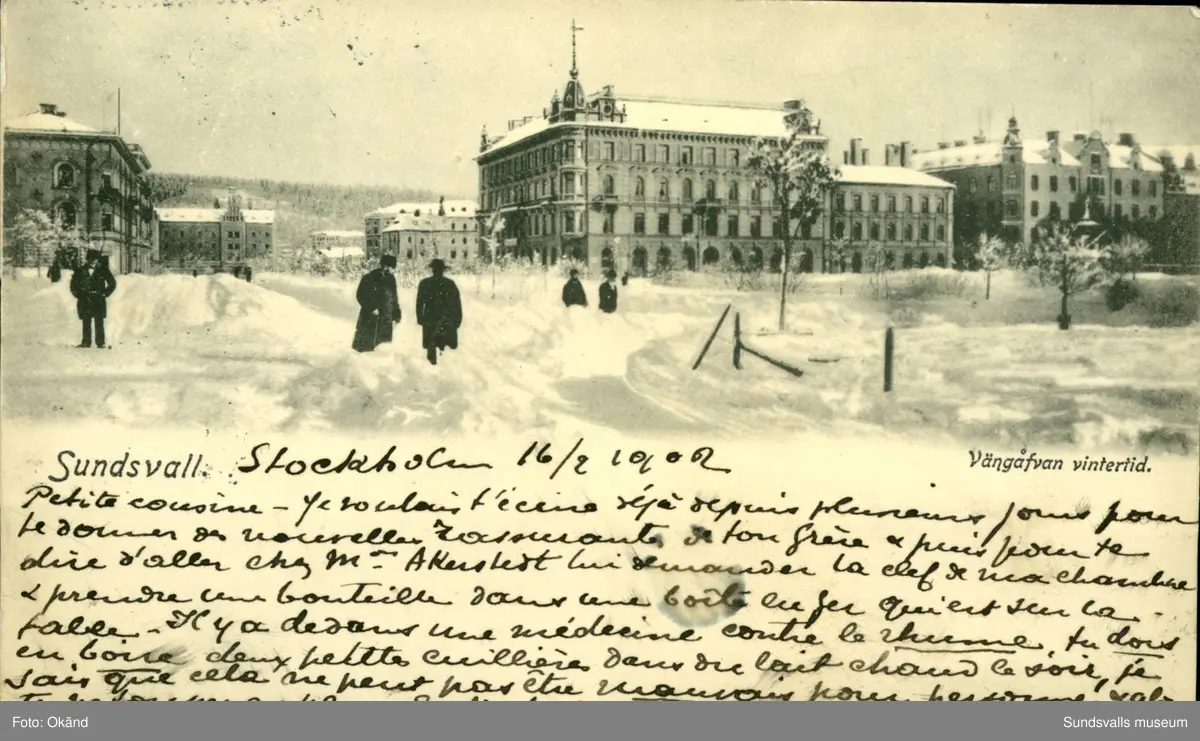 Sundsvall. Stockholm 16/2 1902
Vängåfvan vintertid.
Petite cousine – Je voulais t'écrire déjà depuis plusieurs jours pour
te donner des nouvelles rassurantes de ton frère & puis pour te
dire d'aller chez Mme Akerstedt lui demander la clef de ma chambre
& prendre une bouteille dans une boîte en fer qui est sur la
table – Il y a dedans une médecine contre le rhume, tu dois
en boire deux petites cuillières dans du lait chaud le soir, je
sais que cela ne peut pas être mauvais pour personne,
Foto: Okänd
Sundsvalls museum